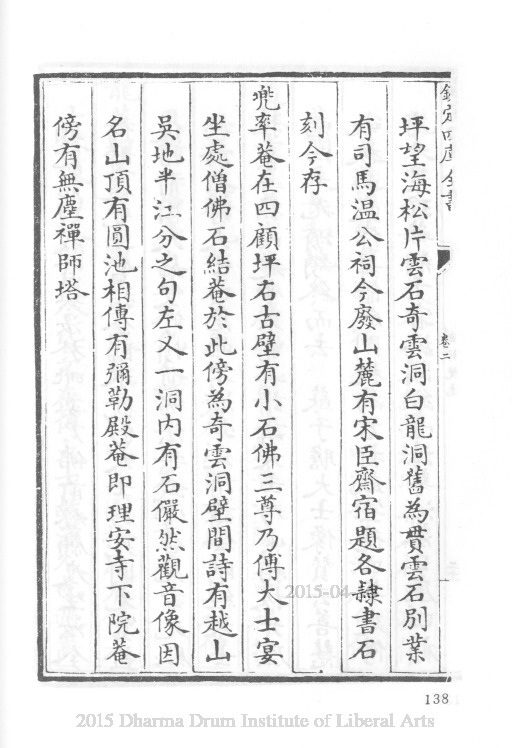 欽定四庫全書
卷二
坪望海松片雲石奇雲洞白龍洞舊為貫雲石别業
有司馬温公祠今廢山麓有宋臣齋宿題名隸書石
刻今存
兠率菴在四顧坪右古壁有小石佛三尊乃傅大士宴
坐處僧佛石結菴於此傍為奇雲洞壁間詩有越山
吳地半江分之句左又一洞内有石儼然觀音像因
名山頂有圓池相傳有彌勒殿菴即理安寺下院菴
傍有無塵禪師塔
138
2015-04
2015 Dharma Drum Institute of Liberal Arts